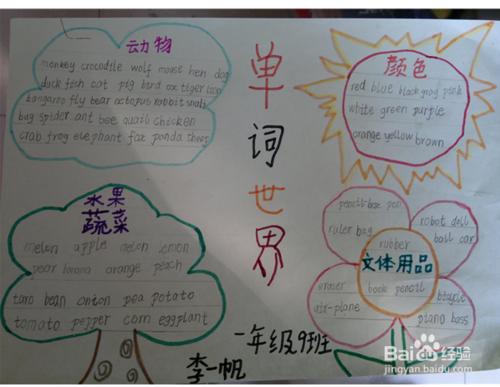 动物
monkey crocodile wolf mouse hen dog
duck fish cat pig bird ox tiger lion
kangaroo fly bear octopus rabbit snail
bug spider ant bee quail chicken
crab frog elephant fox panda
单词世界
颜色
red blue black gray pink
white green purple
orange yellow brown
水果
蔬菜
melon apple melon lemon
pear banana orange peach
taro bean onion pea potato
tomato pepper corn eggplant
文体用品
pencil-box pen
ruler bag
rubber
robot doll
ball car
eraser
air-plane
book pencil
bicycle
piano bass
一年级9班
李一帆
Baidu 经验
jingyan.baidu.com